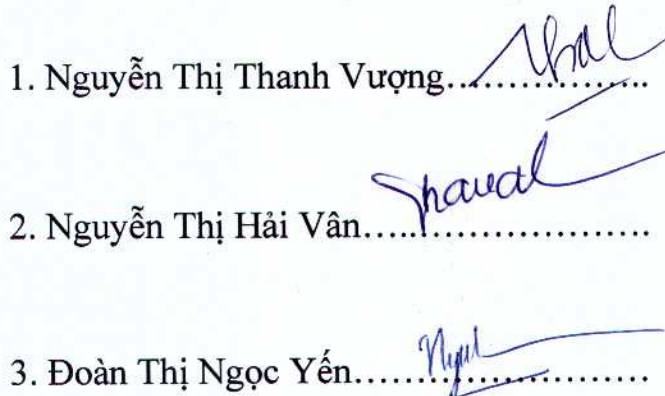 1. Nguyễn Thị Thanh Vượng......................
2. Nguyễn Thị Hải Vân..............................
3. Đoàn Thị Ngọc Yến..............................